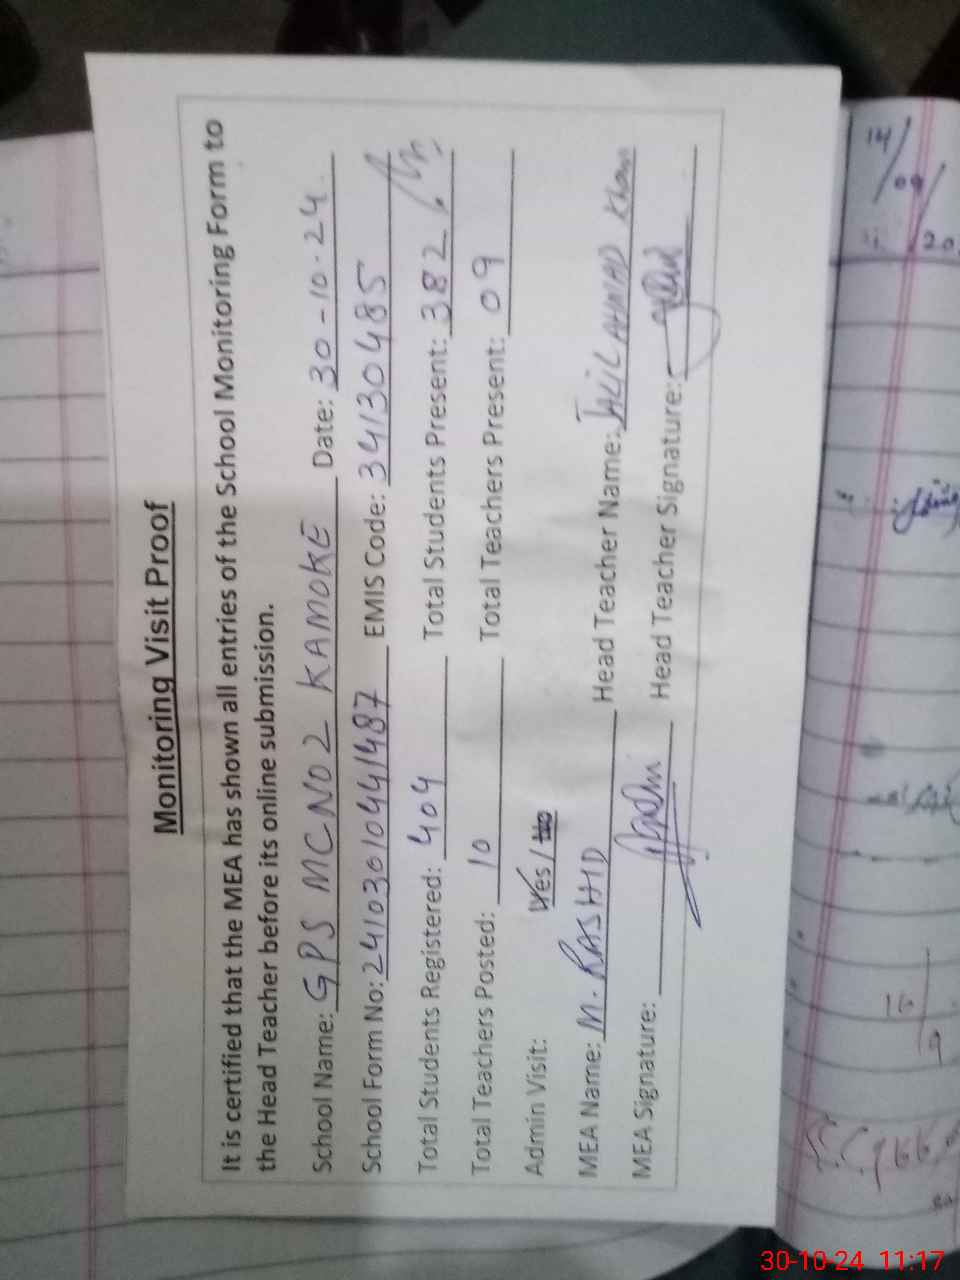 Monitoring Visit Proof
It is certified that the MEA has shown all entries of the School Monitoring Form to
the Head Teacher before its online submission.
School Name: GPS MCNO2 KAMOKE Date: 30-10-24
School Form No: 24103010441487 EMIS Code: 34130485
Total Students Registered: 404 Total Students Present: 382
Total Teachers Posted: 10 Total Teachers Present: 09
Admin Visit: Yes / No
MEA Name: M. RASHID Head Teacher Name: JALIL AHMAD Khan
MEA Signature: Head Teacher Signature:
14/09/20
30-10-24 11:17